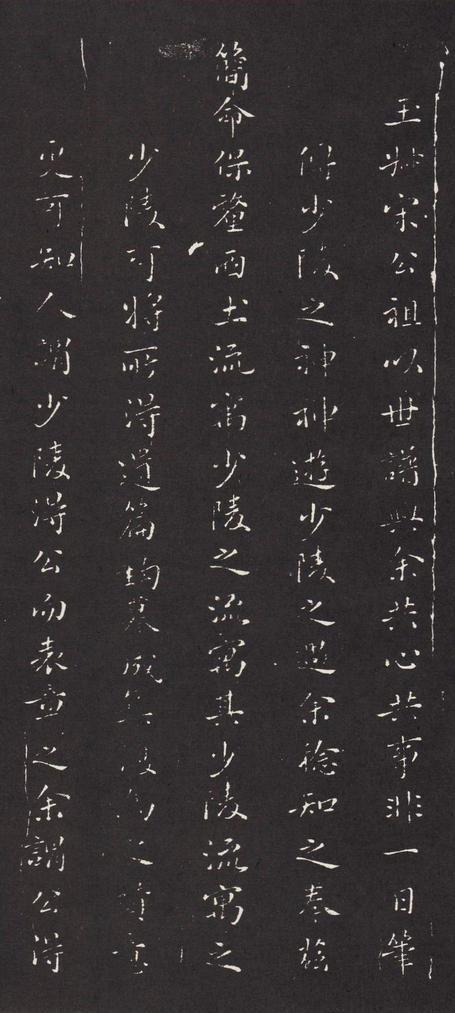 玉叔宋公祖以世譜與余共心共事非一日筆
少陵之神神遊少陵之遊余稔知之奉茲
簡命保釐西土流寓少陵之流寓其少陵流寓之
少陵可將所得遺篇鉤摹成
更可知人謂少陵得公而表章之余謂公得